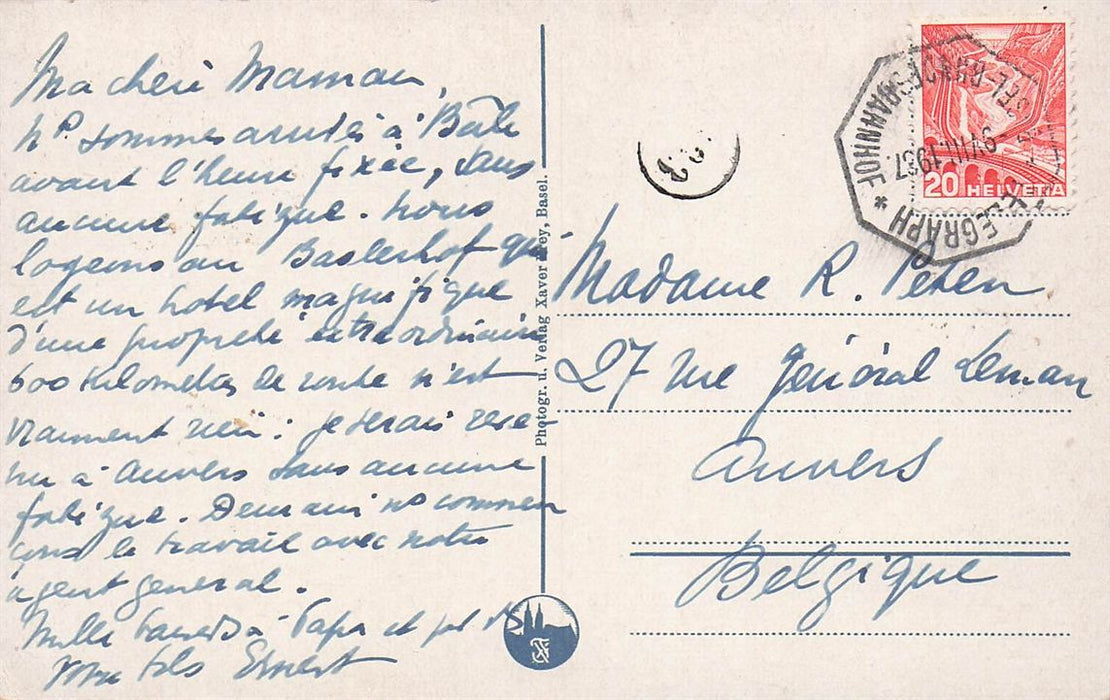 Ma chère Maman,
ns sommes arrivés à Bâle
avant l'heure fixée, sans
aucune fatigue. Nous
logeons au Baslerhof qui
est un hotel magnifique
d'une propreté extraordinaire
600 kilometres de route n'est
vraiment rien: je serais reve-
nu à Anvers sans aucune
fatigue. Demain ns commen
çons le travail avec notre
agent general.
Mille baisers à Papa et
votre fils Ernest
Photogr. u. Verlag Xaver Frey, Basel.
20 HELVETIA
TELEGRAPH
BASEL-BUNDESBAHNHOF *
9.VIII.1937
Madame R. Peten
27 rue Général Leman
Anvers
Belgique